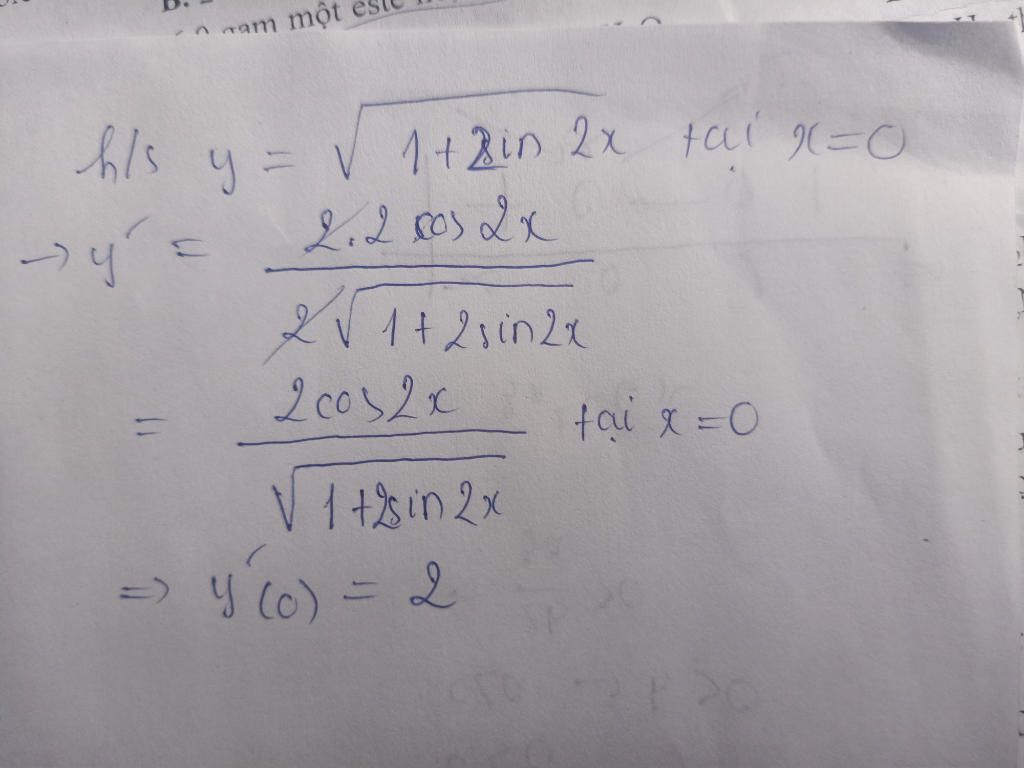 B.
gam một este
h/s y = √(1+2sin 2x) tại x=0
→ y' = (2.2 cos 2x)/(2√(1+2sin2x))
= (2cos2x)/(√(1+2sin2x)) tại x=0
=> y'(0) = 2